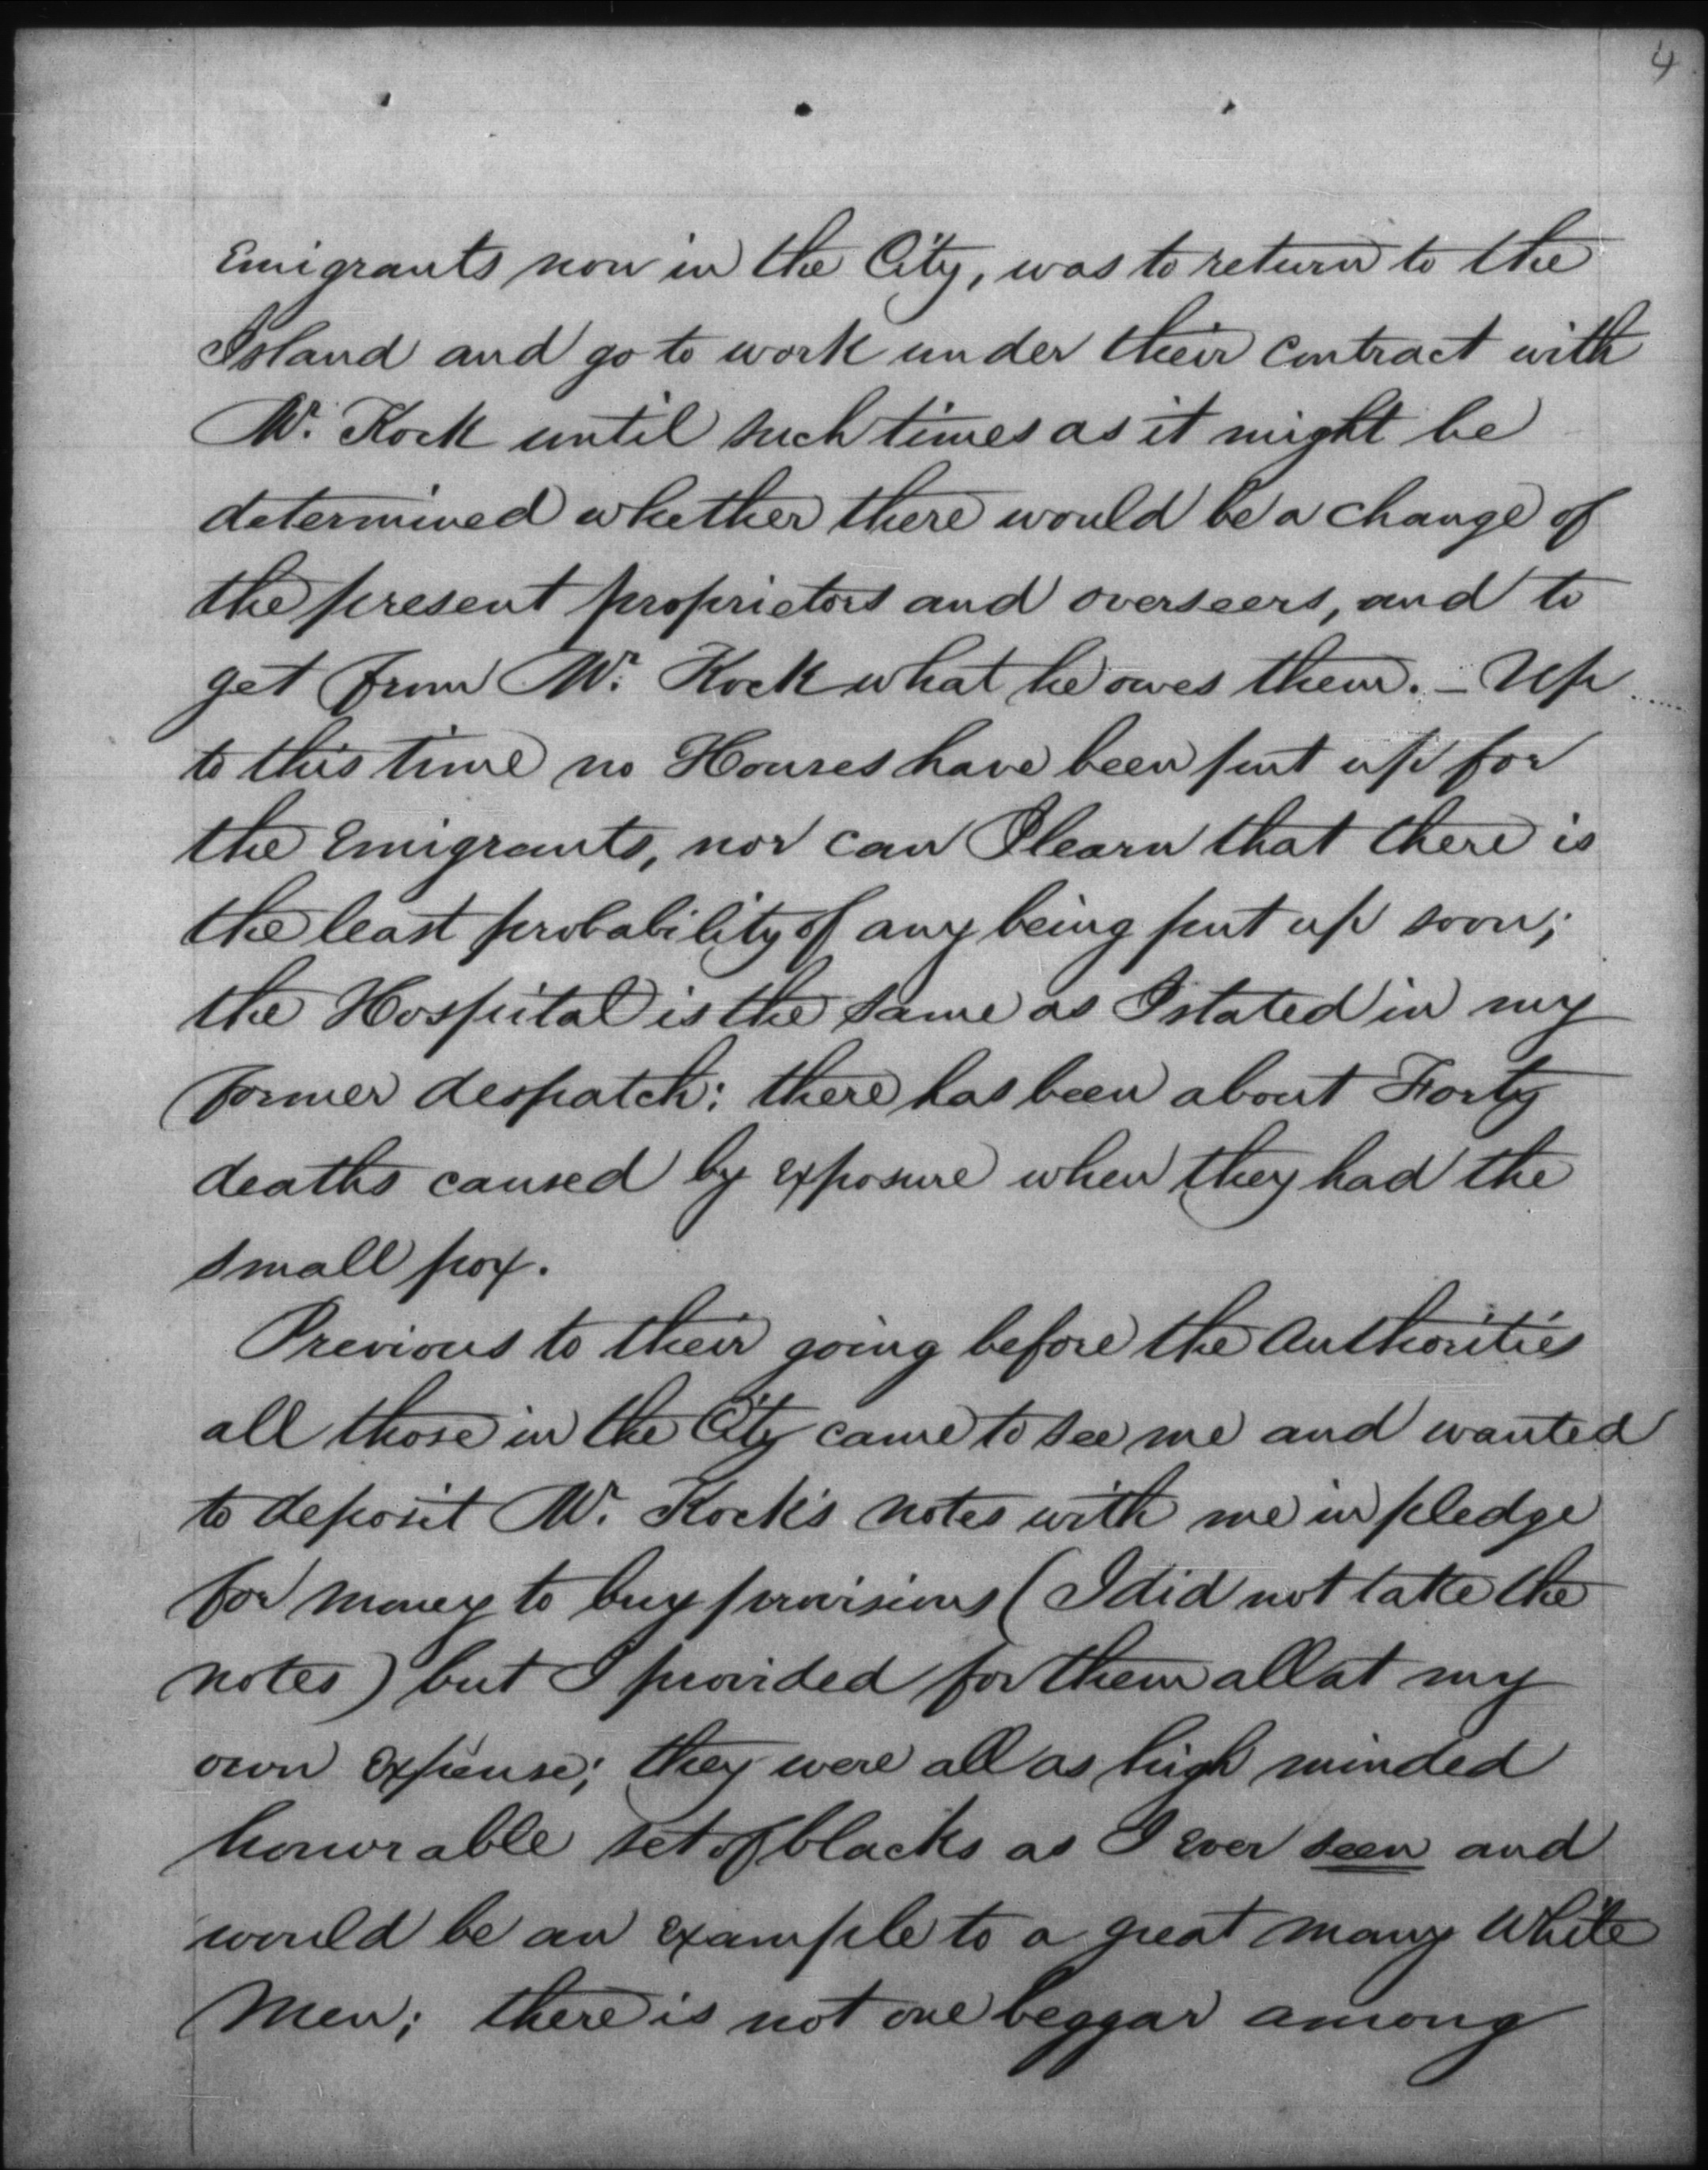 4
Emigrants now in the City, was to return to the
Island and go to work under their contract with
Mr. Kock until such times as it might be
determined whether there would be a change of
the present proprietors and overseers, and to
get from Mr. Kock what he owes them. – Up
to this time no Houses have been put up for
the Emigrants, nor can I learn that there is
the least probability of any being put up soon;
the Hospital is the same as I stated in my
former despatch: there has been about Forty
deaths caused by exposure when they had the
small pox.
Previous to their going before the Authorities
all those in the City came to see me and wanted
to deposit Mr. Kock's notes with me in pledge
for money to buy provisions (I did not take the
notes) but I provided for them all at my
own expense; they were all as high minded
honorable set of blacks as I ever seen and
would be an example to a great many White
Men; there is not one beggar among